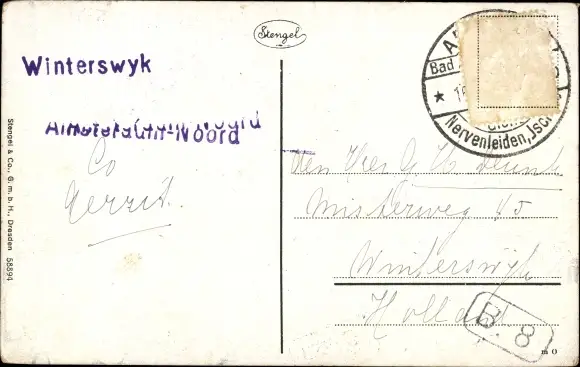 Stengel
Winterswyk
Amsterdam-Noord
Co
Gerrit.
Stengel & Co., G. m. b. H., Dresden 58894
Bad
Nervenleiden, Isch
den Heer G H
Misterweg 85
Winterswyk
Holland
B. 8
m O